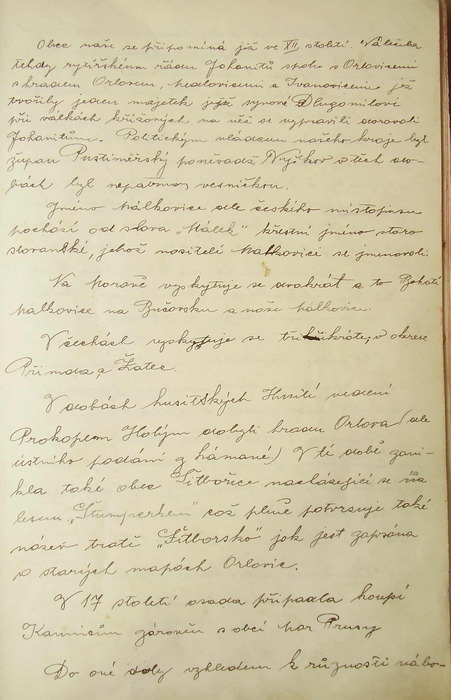 Obec naše se připomíná již ve XII. století. Náležela
tehdy rytířskému řádu Johanitů spolu s Orlovicemi
s hradem Orlovem, Malovicemi a Ivanovicemi jež
tvořily jeden majetek jejž synové Dlugomilovi
při válkách křížových na něž se vypravili darovali
Johanitům. Politickým vládcem našeho kraje byl
župan Pustiměřský poněvadž Vyškov v těch do-
bách byl nepatrnou vesničkou.
Jméno Málkovice dle českého místopisu
pochází od slova „Málek" křestní jméno staro
slovanské, jehož nositelé Malkovici se jmenovali.
Na Moravě vyskytuje se dvakrát a to
Malkovice na Bučovsku a naše Málkovice.
V Čechách vyskytuje se třikráte, v okrese
Přimda, a Žatec.
V dobách husitských Husité vedení
Prokopem Holým dobyli hradu Orlova (dle
ústního podání g hámané) V té době zani-
kla také obec Šitbořice nacházející se za
lesem „Štumperkem" což plně potvrzuje také
název tratě „Šitborsko" jak jest zapsána
v starých mapách Orlovic.
V 17 století osada připadla koupí
Kaunicům zároveň s obcí Prusy
Do oné doby vzhledem k různosti nábo-